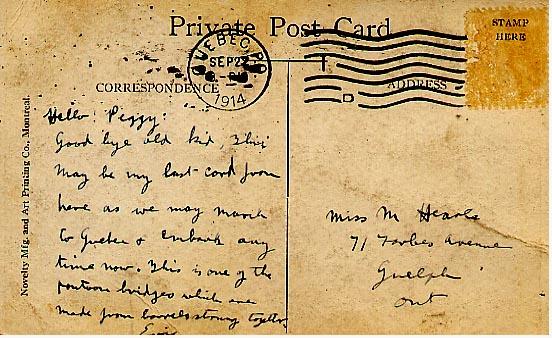 Private Post Card
STAMP
HERE
QUEBEC, P.Q.
SEP 22
1914
CORRESPONDENCE
ADDRESS
Novelty Mfg. and Art Printing Co., Montreal.
Hello! Peggy:
Good bye old kid, This
may be my last card from
here as we may march
to Quebec & embark any
time now. This is one of the
pontoon bridges which are
made from barrels strong together
Miss M Hearls
71 Forbes Avenue
Guelph
Ont